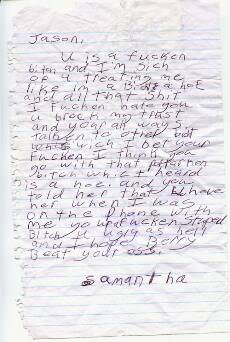 Jason,
U is a fucken
bitch and I'm sich
of u treating me
like im a Bitch a hoe
and all that shit
I fucken hate you
u brock my trust
and your all ways
talken to other
wich I bet your
fucken I think you
go with that
bitch which I heard
is a hoe. and you
told her that U have
her when I was
on the phone with
me you fucken stuped
Bitch u ugly as hell
and I hope Berry
Beat your ass.
Samantha